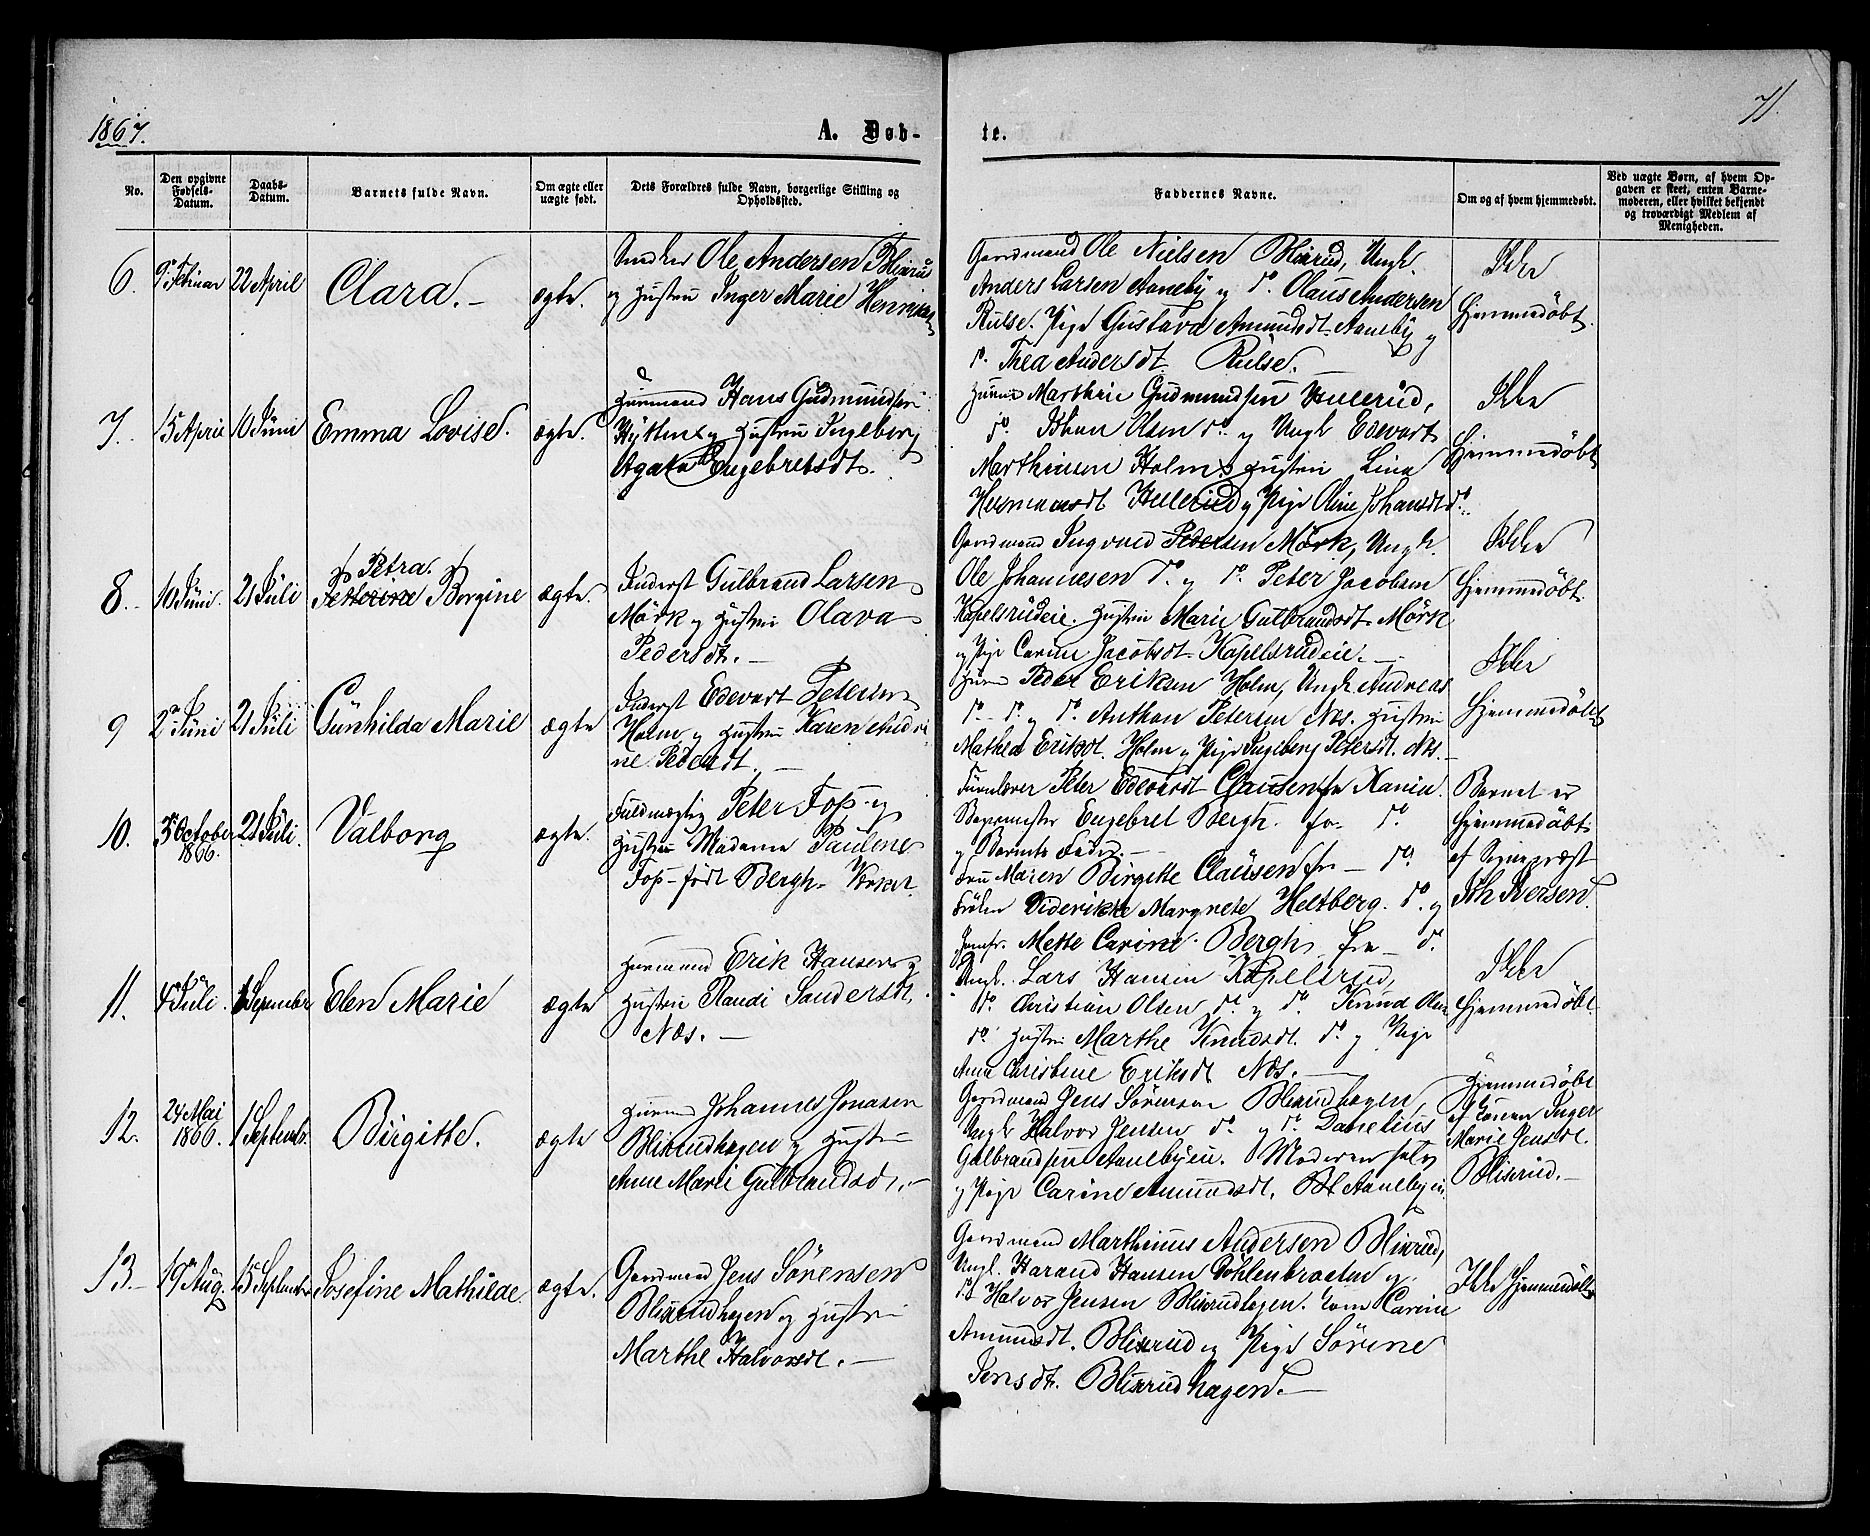 1867.
A. Døb-
te.
71.
No.
Den opgivne Fødsels-Datum.
Daabs-Datum.
Barnets fulde Navn.
Om ægte eller uægte født.
Dets Forældres fulde Navn, borgerlige Stilling og Opholdssted.
Faddernes Navne.
Om og af hvem hjemmedøbt.
Ved uægte Børn, af hvem Op-
gaven er skeet, enten Barne-
moderen, eller hvilket bekjendt
og troværdigt Medlem af
Menigheden.
6. 22 April Clara.- ægte.
Ole Andersen Blixrud
og Hustru Inger Marie
Gaardmand Ole Nielsen Blixrud, Ungk.
Anders Larsen Aaneby og do. Olaus Andersen
Rulse. Pige Gustava Amundsdt. Aaneby og
do. Thea Andersdt. Rulse.
Ikke
Hjemmedøbt.
7. 15 April 10 Juni Emma Lovise. ægte.
Huusmand Hans Gudmundsen
og Hustru Ingeborg
Agata Engebretsdt.
Gudmundsen
do. Johan Olsen do. og Ungk Edevart
Marthinsen Holm. Hustru Lina
Hermansdt og Pige Oline Johansdt do.
Ikke
Hjemmedøbt
8. 10 Juni. 21 Juli Petra.
Petterine Borgine ægte.
Inderst Gulbrand Larsen
Mørk og Hustru Olava
Pedersdt.-
Gaardmand Ingvard Pedersen Mørk, Ungk.
Ole Johannesen do. og do. Peter Jacobsen
Kapelsrudeie. Hustru Marie Gulbrandsdt. Mørk
og Pige Carine Jacobsdt. Kapelsrudeie.-
Ikke
Hjemmedøbt.
9 2 Juni 21 Juli Gunhilda Marie ægte
Inderst Edevart Petersen
Holm og Hustru Karen Andri-
ne Pedersdt.-
Peder Eriksen Holm, Ungk. Andreas
do.- do. og do. Anthon Petersen Næs. Hustru
Mathea Eriksdt. Holm og Pige Ingeborg Petersdt. Næs.-
Ikke
Hjemmedøbt
10. October 1866. 21 Juli. Valborg ægte.
Fuldmægtig Peter Foss og
Hustru Madame Paulene
Foss født Bergh
Peter Edevardt Clausen fra
Engebret Bergh. fra do.
og Barnets Fader.-
Fru Maren Birgitte Clausen fra - do.
Frøken Diderikke Margrete Heltberg. do. og
Jomfr. Mette Carine Bergh fra - do.
Barnet er
Hjemmedøbt
af Sognepræst
Iversen.
11. 4 Juli. 1 September Elen Marie ægte
Huusmand Erik Hansen og
Hustru Randi Sandersdt.
Næs.-
Ungk. Lars Hansen Kapelsrud,
do. Christian Olsen do. og do. Knud Olsen
do. Hustru Marthe Knudsdt. do. og Pige
Anne Christine Eriksdt Næs.-
Ikke
Hjemmedøbt.
12. 24 Mai 1866. 1 September. Birgitte. ægte
Johannes Jonasen
Blixrudhagen og Hustru
Anne Marie Gulbrandsdt.-
Gaardmand Jens Sørensen Blixrudhagen,
Ungk Halvor Jensen do. og do. Danelius
Gulbrandsen Aanebyeie. Moderen selv
og Pige Carine Amundsdt. Aanebyeie
Hjemmedøbt
af Konen Inger
Marie Jensdt.
Blixrud.-
13.- 19 Aug. 15 September Josefine Mathilde. ægte.
Gaardmand Jens Sørensen
Blixrudhagen og Hustru
Marthe Halvorsdt.-
Gaardmand Marthinus Andersen Blixrud,
Ungk. Harald Hansen og
do. Halvor Jensen Blixrudhagen. Kone Carine
Amundsdt. Blixrud og Pige Sørine
Jensdt. Blixrudhagen.-
Ikke Hjemmedøbt